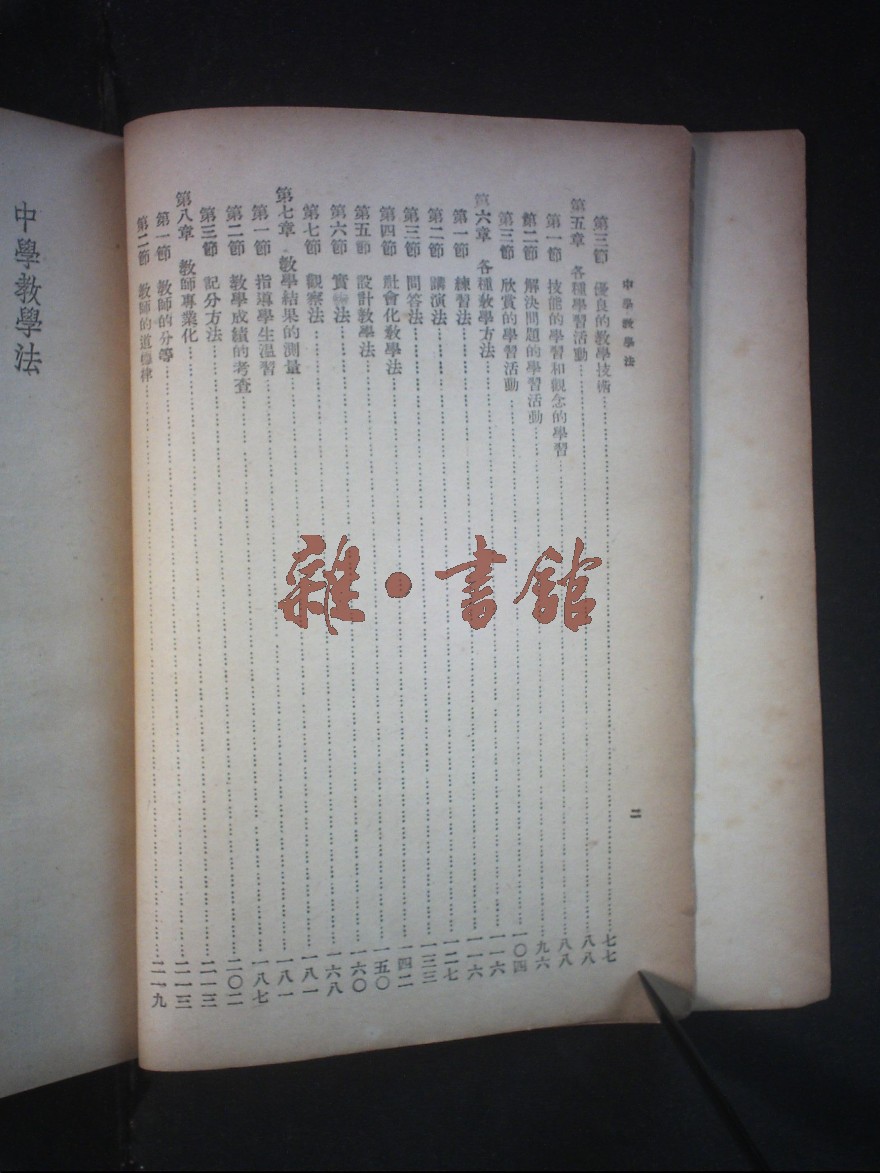 中學教學法
二
第三節 優良的教學技術 七七
第五章 各種學習活動 八八
第一節 技能的學習和觀念的學習 八八
第二節 解決問題的學習活動 九六
第三節 欣賞的學習活動 一〇四
第六章 各種教學方法 一一六
第一節 練習法 一一六
第二節 講演法 一二七
第三節 問答法 一三三
第四節 社會化教學法 一四二
第五節 設計教學法 一五〇
第六節 實驗法 一六〇
第七節 觀察法 一六八
第七章 教學結果的測量 一八一
第一節 指導學生溫習 一八一
第二節 教學成績的考查 一八七
第三節 記分方法 二〇二
第八章 教師專業化 二一三
第一節 教師的分等 二一三
第二節 教師的道德律 二一九
中學教學法
雜·書館